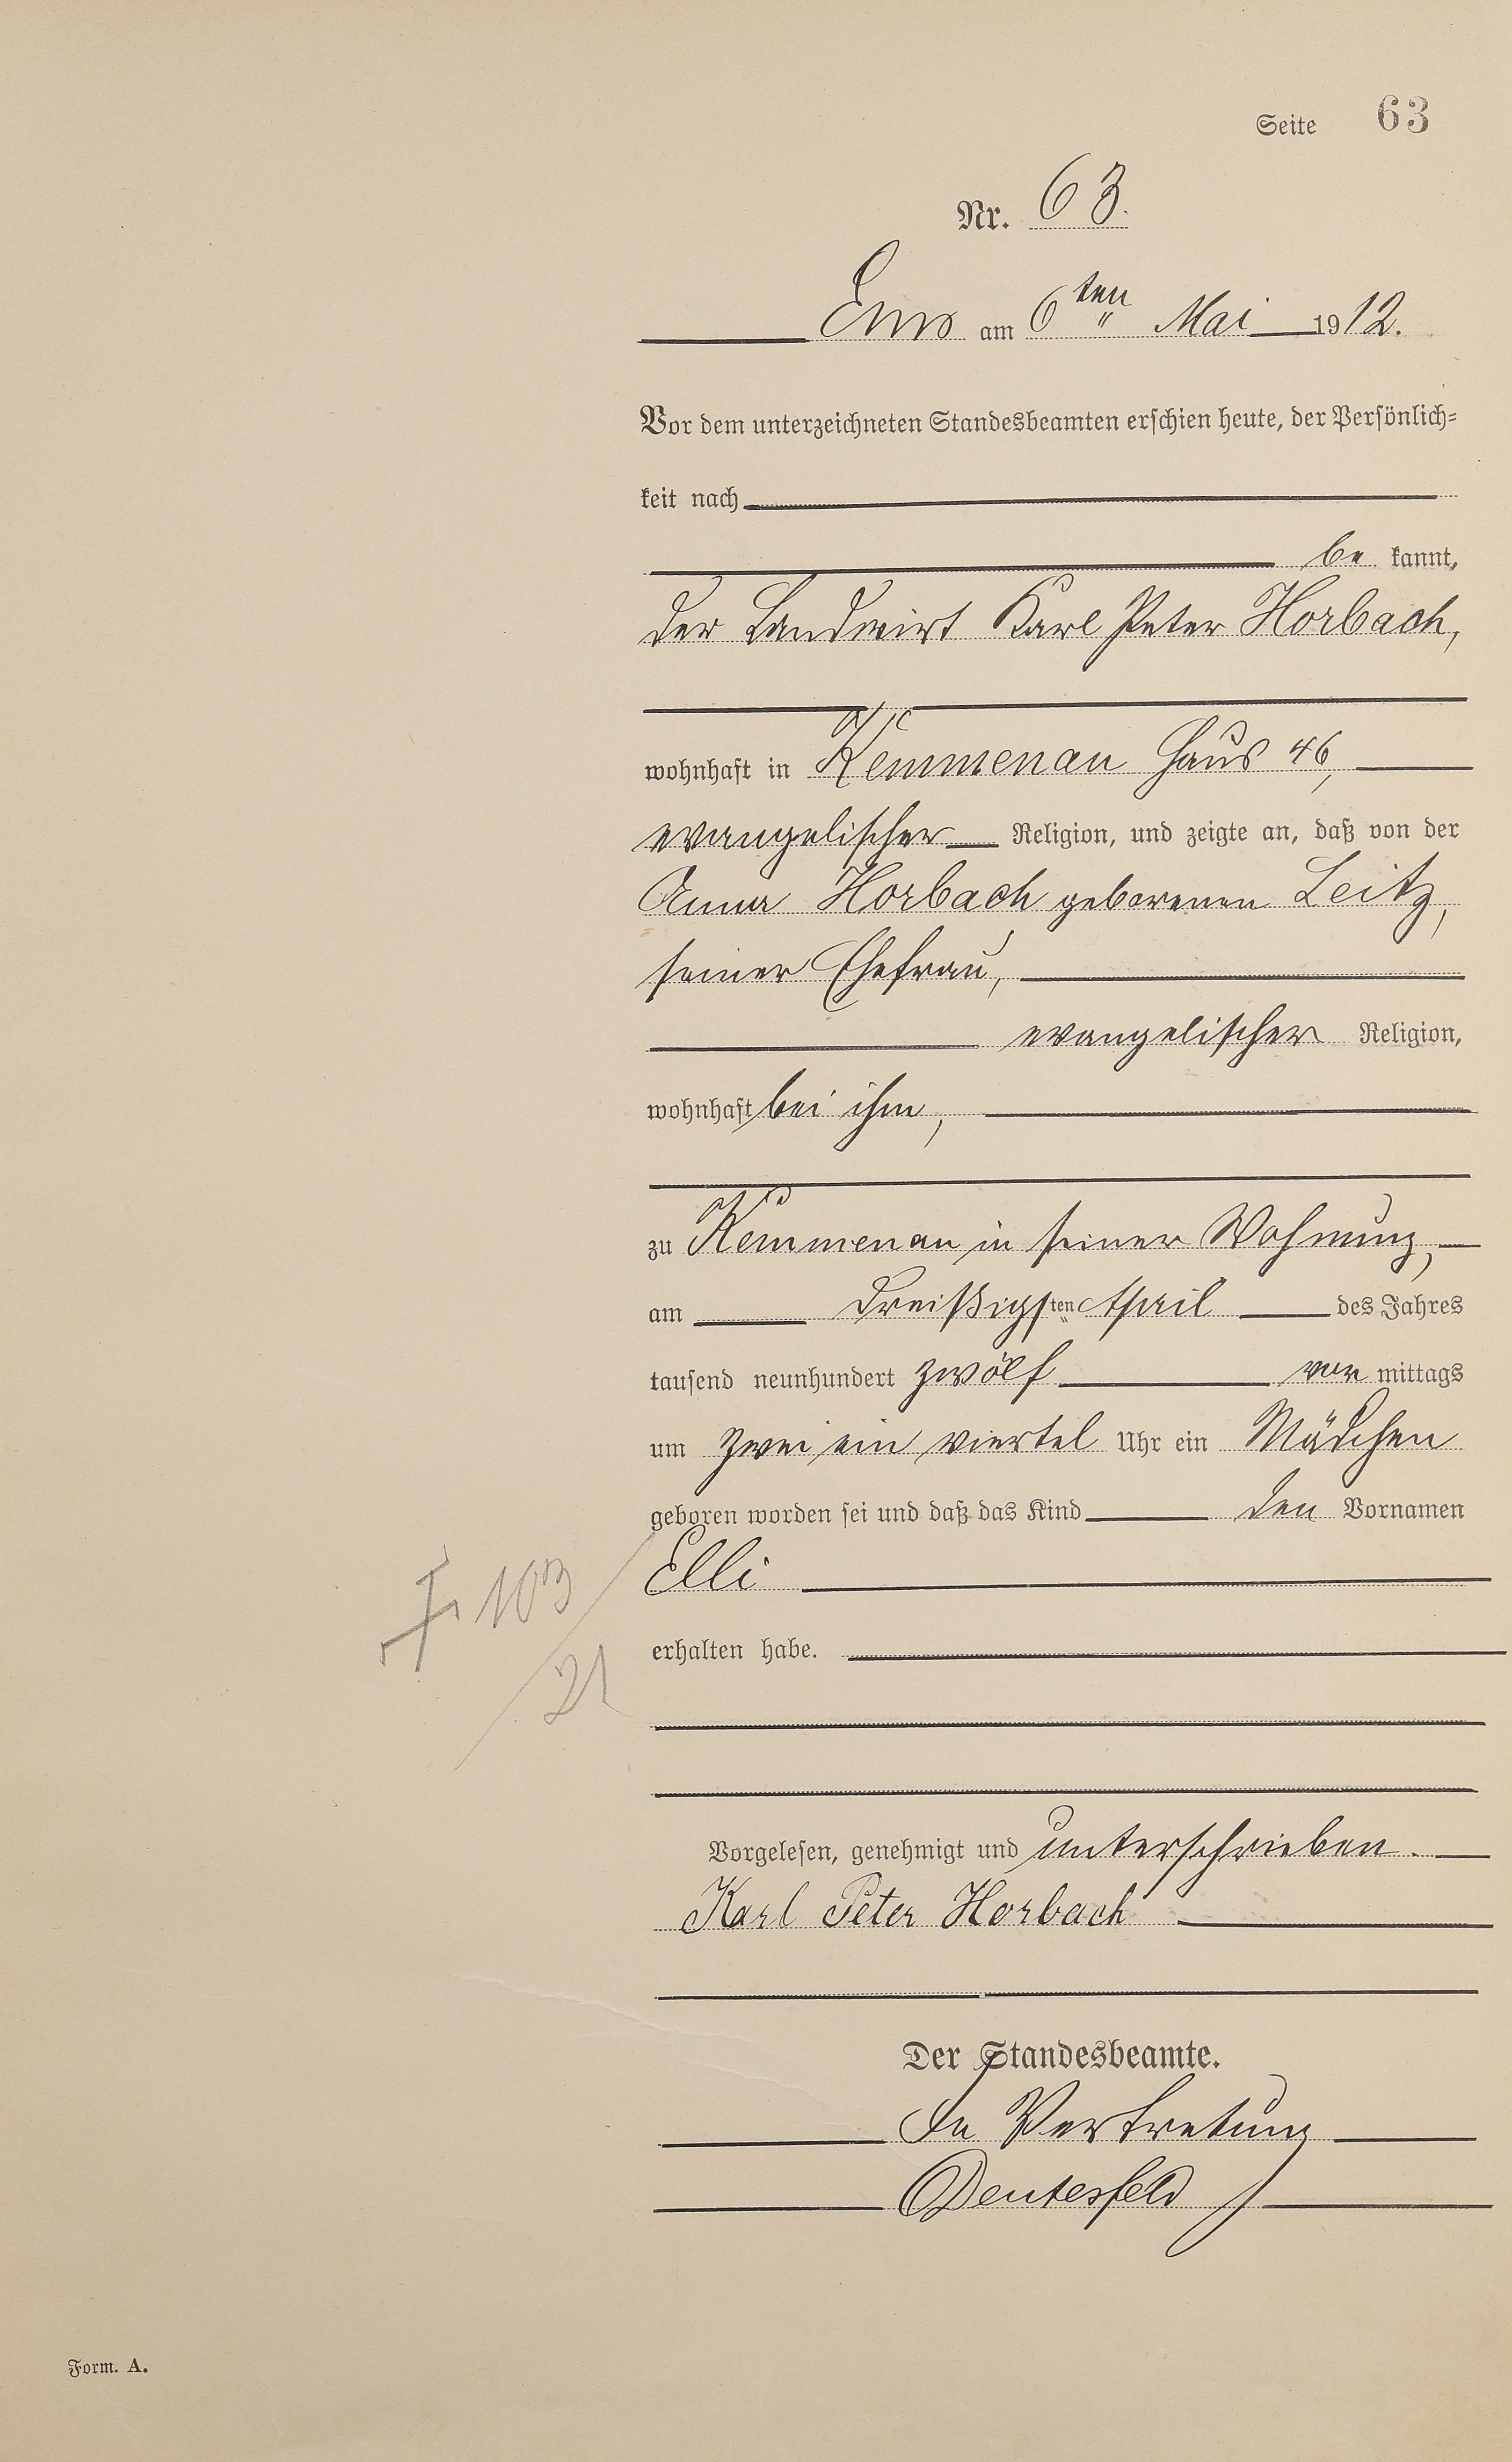 Seite 63
Nr. 63.
Ems am 6ten Mai 1912.
Vor dem unterzeichneten Standesbeamten erschien heute, der Persönlich-
keit nach
be kannt,
der Landwirt Karl Peter Horbach,
wohnhaft in Kemmenau Haus 46,
evangelischer Religion, und zeigte an, daß von der
Anna Horbach geborenen Leitz,
seiner Ehefrau,
evangelischer Religion,
wohnhaft bei ihm,
zu Kemmenau in seiner Wohnung,
am dreißigsten April des Jahres
tausend neunhundert zwölf vor mittags
um zwei ein viertel Uhr ein Mädchen
geboren worden sei und daß das Kind den Vornamen
Elli
† 103/21
erhalten habe.
Vorgelesen, genehmigt und unterschrieben.
Karl Peter Horbach
Der Standesbeamte.
In Vertretung
Form. A.